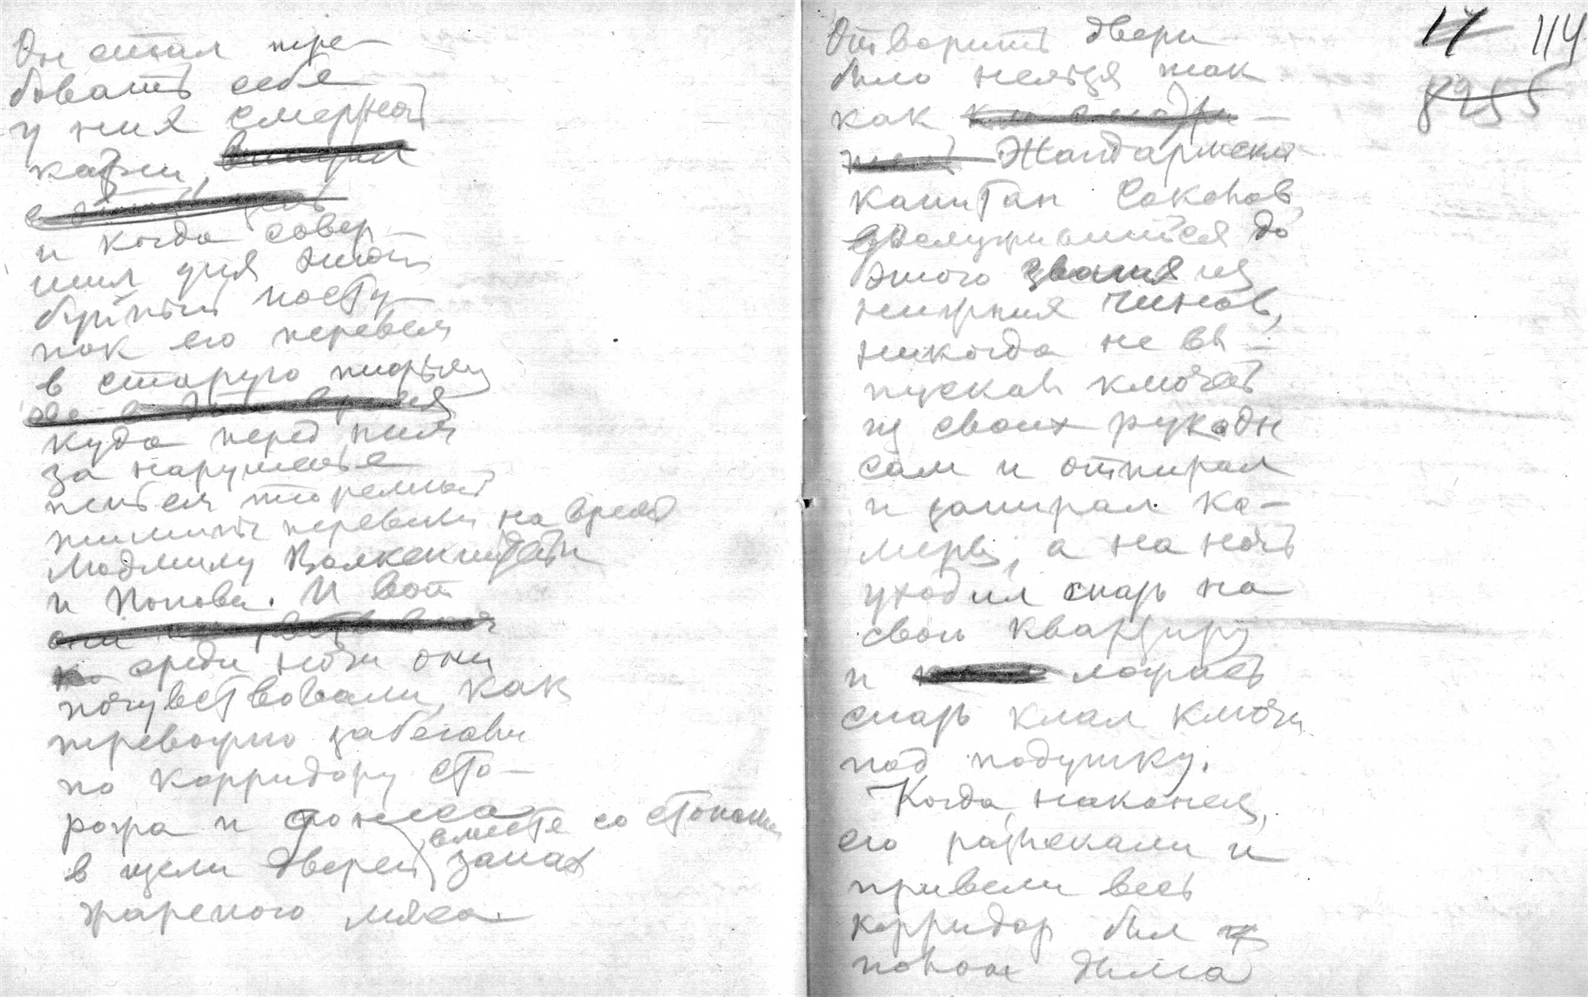 Он стал тре-
бовать себе
у них смертной
казни,
и когда совер-
шил для этого
буйный посту-
пок его перевели
в старую тюрьму
куда перед тем
за нарушение
тюремной
перевели на время
Людмилу Волкенштейн
и Попова. И вот
среди ночи они
почувствовали, как
тревожно забегали
по корридору сто-
рожа и донесся
вместе со стонами
в щели дверей запах
жареного мяса.
Отворить двери
было нельзя так
как
Жандармский
капитан Соколов,
дослужившийся до
этого звания из
нижних чинов,
никогда не вы-
пускал ключей
из своих рук один
сам и отпирал
и запирал ка-
меры, а на ночь
уходил спать на
свою квартиру
и ложась
спать клал ключи
под подушку.
Когда, наконец,
его разыскали и
привели весь
корридор был
полон дыма
114
8255